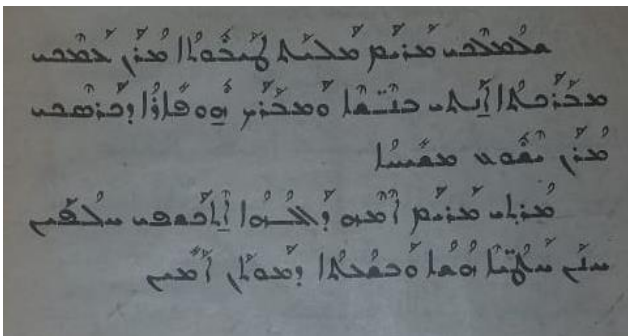 ܫܠܡܠܟܝ ܡܪܝܡ ܡܠܝܬ ܛܝܒܘܬܐ ܡܪܢ ܥܡܟܝ
ܡܒܪܟܬܐ ܐܢܬܝ ܒܢܫ̈ܐ ܘܡܒܪܟ ܗܘ ܦܐܪܐ ܕܒܟܪܣܟܝ
ܡܪܢ ܝܫܘܥ ܡܫܝܚܐ
ܡܪܬܝ ܡܪܝܡ ܐܡܗ ܕܐܠܗܐ ܐܬܟܫܦܝ ܚܠܦܝܢ
ܚܢܢ ܚܛܝ̈ܐ ܗܫܐ ܘܒܫܥܬܐ ܕܡܘܬܢ ܐܡܝܢ